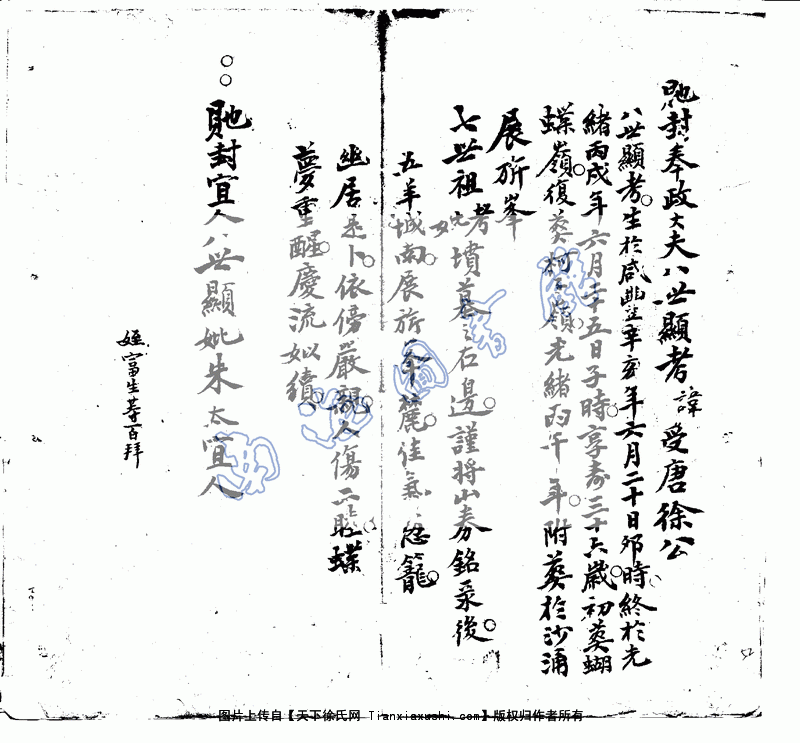 貤封奉政大夫八世顯考諱受唐徐公
八世顯考。生於咸豐辛亥年六月二十日卯時終於光
緒丙戌年六月十五日子時。享壽三十六歲。初葬蝴
蝶嶺。復葬柯子嶺。光緒丙午年。附葬於沙涌
展旂峯
七世祖考妣墳墓之石邊。謹將山券銘录後。
五羊城南。展旂峯麓。佳氣蔥籠。
幽居是卜。依傍嚴親。人傷二豎。蝶
夢重醒。慶流似續。
○○貤封宜人八世顯妣朱太宜人
姪富生等百拜
图片上传自【天下徐氏网 Tianxiaxushi.com】版权归作者所有